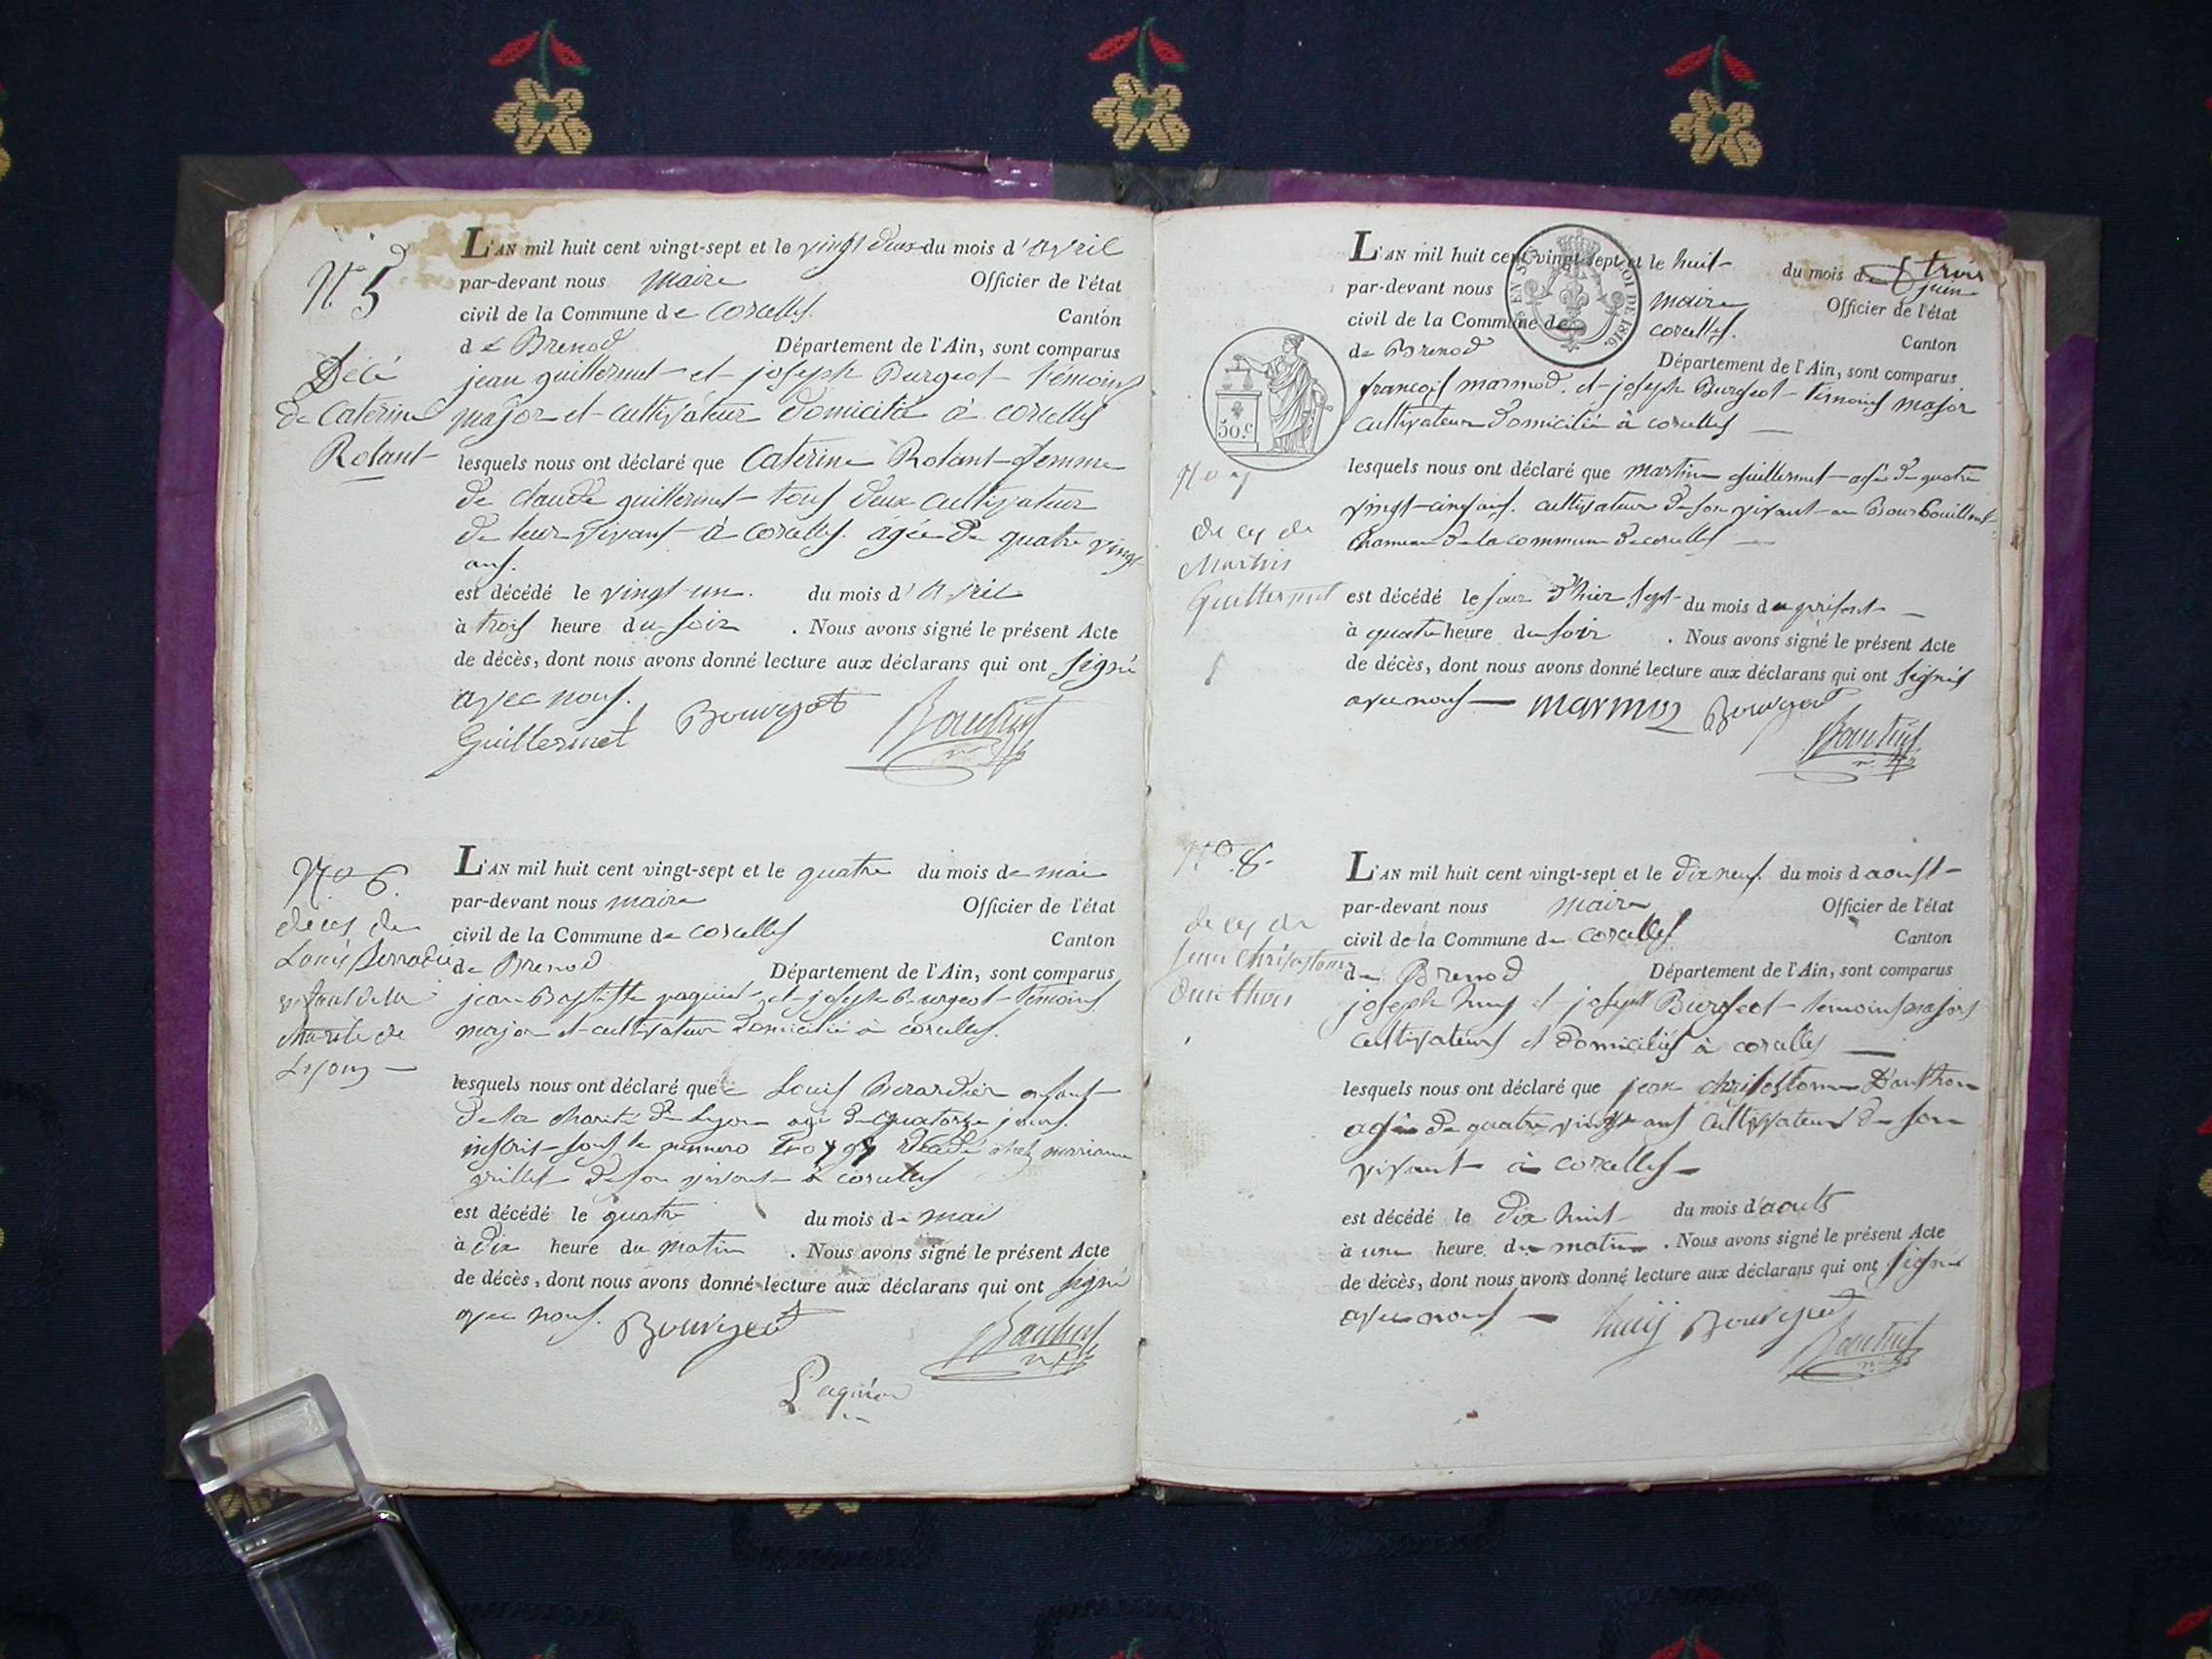 N° 5
Décé
de Caterine
Rolant
L'AN mil huit cent vingt-sept et le vingt deux du mois d'Avril
par-devant nous maire Officier de l'état
civil de la Commune de Corcelles Canton
de Brenod Département de l'Ain, sont comparus
jean guillermet et joseph Burgeot témoins
major et cultivateur domicilié à corcelles
lesquels nous ont déclaré que Caterine Rolant femme
de claude guillermet tous deux cultivateur
de leur vivant à corcelles agée de quatre vingt
ans.
est décédé le vingt un du mois d'Avril
à trois heure du soir . Nous avons signé le présent Acte
de décès, dont nous avons donné lecture aux déclarans qui ont signé
avec nous.
Guillermet Bourgeot
N° 6.
déces de
Louis
enfant de la
charité de
Lyon
L'AN mil huit cent vingt-sept et le quatre du mois de mai
par-devant nous maire Officier de l'état
civil de la Commune de corcelles Canton
de Brenod Département de l'Ain, sont comparus
jean Baptiste paquiet et joseph Burgeot témoins
major et cultivateur domicilié à corcelles.
lesquels nous ont déclaré que Louis Berardier enfant
de la charité de Lyon agé de quatorze jours.
inscrit sous le numero décédé chez marianne
grillet de son vivant à corcelles
est décédé le quatre du mois de mai
à dix heure du matin . Nous avons signé le présent Acte
de décès, dont nous avons donné lecture aux déclarans qui ont signé
avec nous. Bourgeot
EN SUS LOI DE 1816.
50.c
N° 7
décès de
Martin
Guillermet
L'AN mil huit cent vingt-sept et le huit du mois de juin
par-devant nous maire Officier de l'état
civil de la Commune de corcelles. Canton
de Brenod Département de l'Ain, sont comparus
françois marmod et joseph Burgeot témoins major
cultivateur domicilié à corcelles
lesquels nous ont déclaré que martin guillermet agée de quatre
vingt-cinq ans. cultivateur de son vivant au
hameau de la commune de corcelles
est décédé le jour d'hier sept du mois du présent
à quatre heure du soir . Nous avons signé le présent Acte
de décès, dont nous avons donné lecture aux déclarans qui ont signés
avec nous marmoz Bourgeot
N° 8
décès de
jean Chrisostome
L'AN mil huit cent vingt-sept et le dix neuf du mois d'aoust
par-devant nous maire Officier de l'état
civil de la Commune de corcelles Canton
de Brenod Département de l'Ain, sont comparus
joseph huij et joseph Burgeot témoins majors
cultivateurs et domiciliés à corcelles
lesquels nous ont déclaré que jean chrisostome D'anthon
agée de quatre vingt ans cultivateur de son
vivant à corcelles
est décédé le dix huit du mois d'aouts
à une heure du matin . Nous avons signé le présent Acte
de décès, dont nous avons donné lecture aux déclarans qui ont signé
avec nous huij Bourgeot